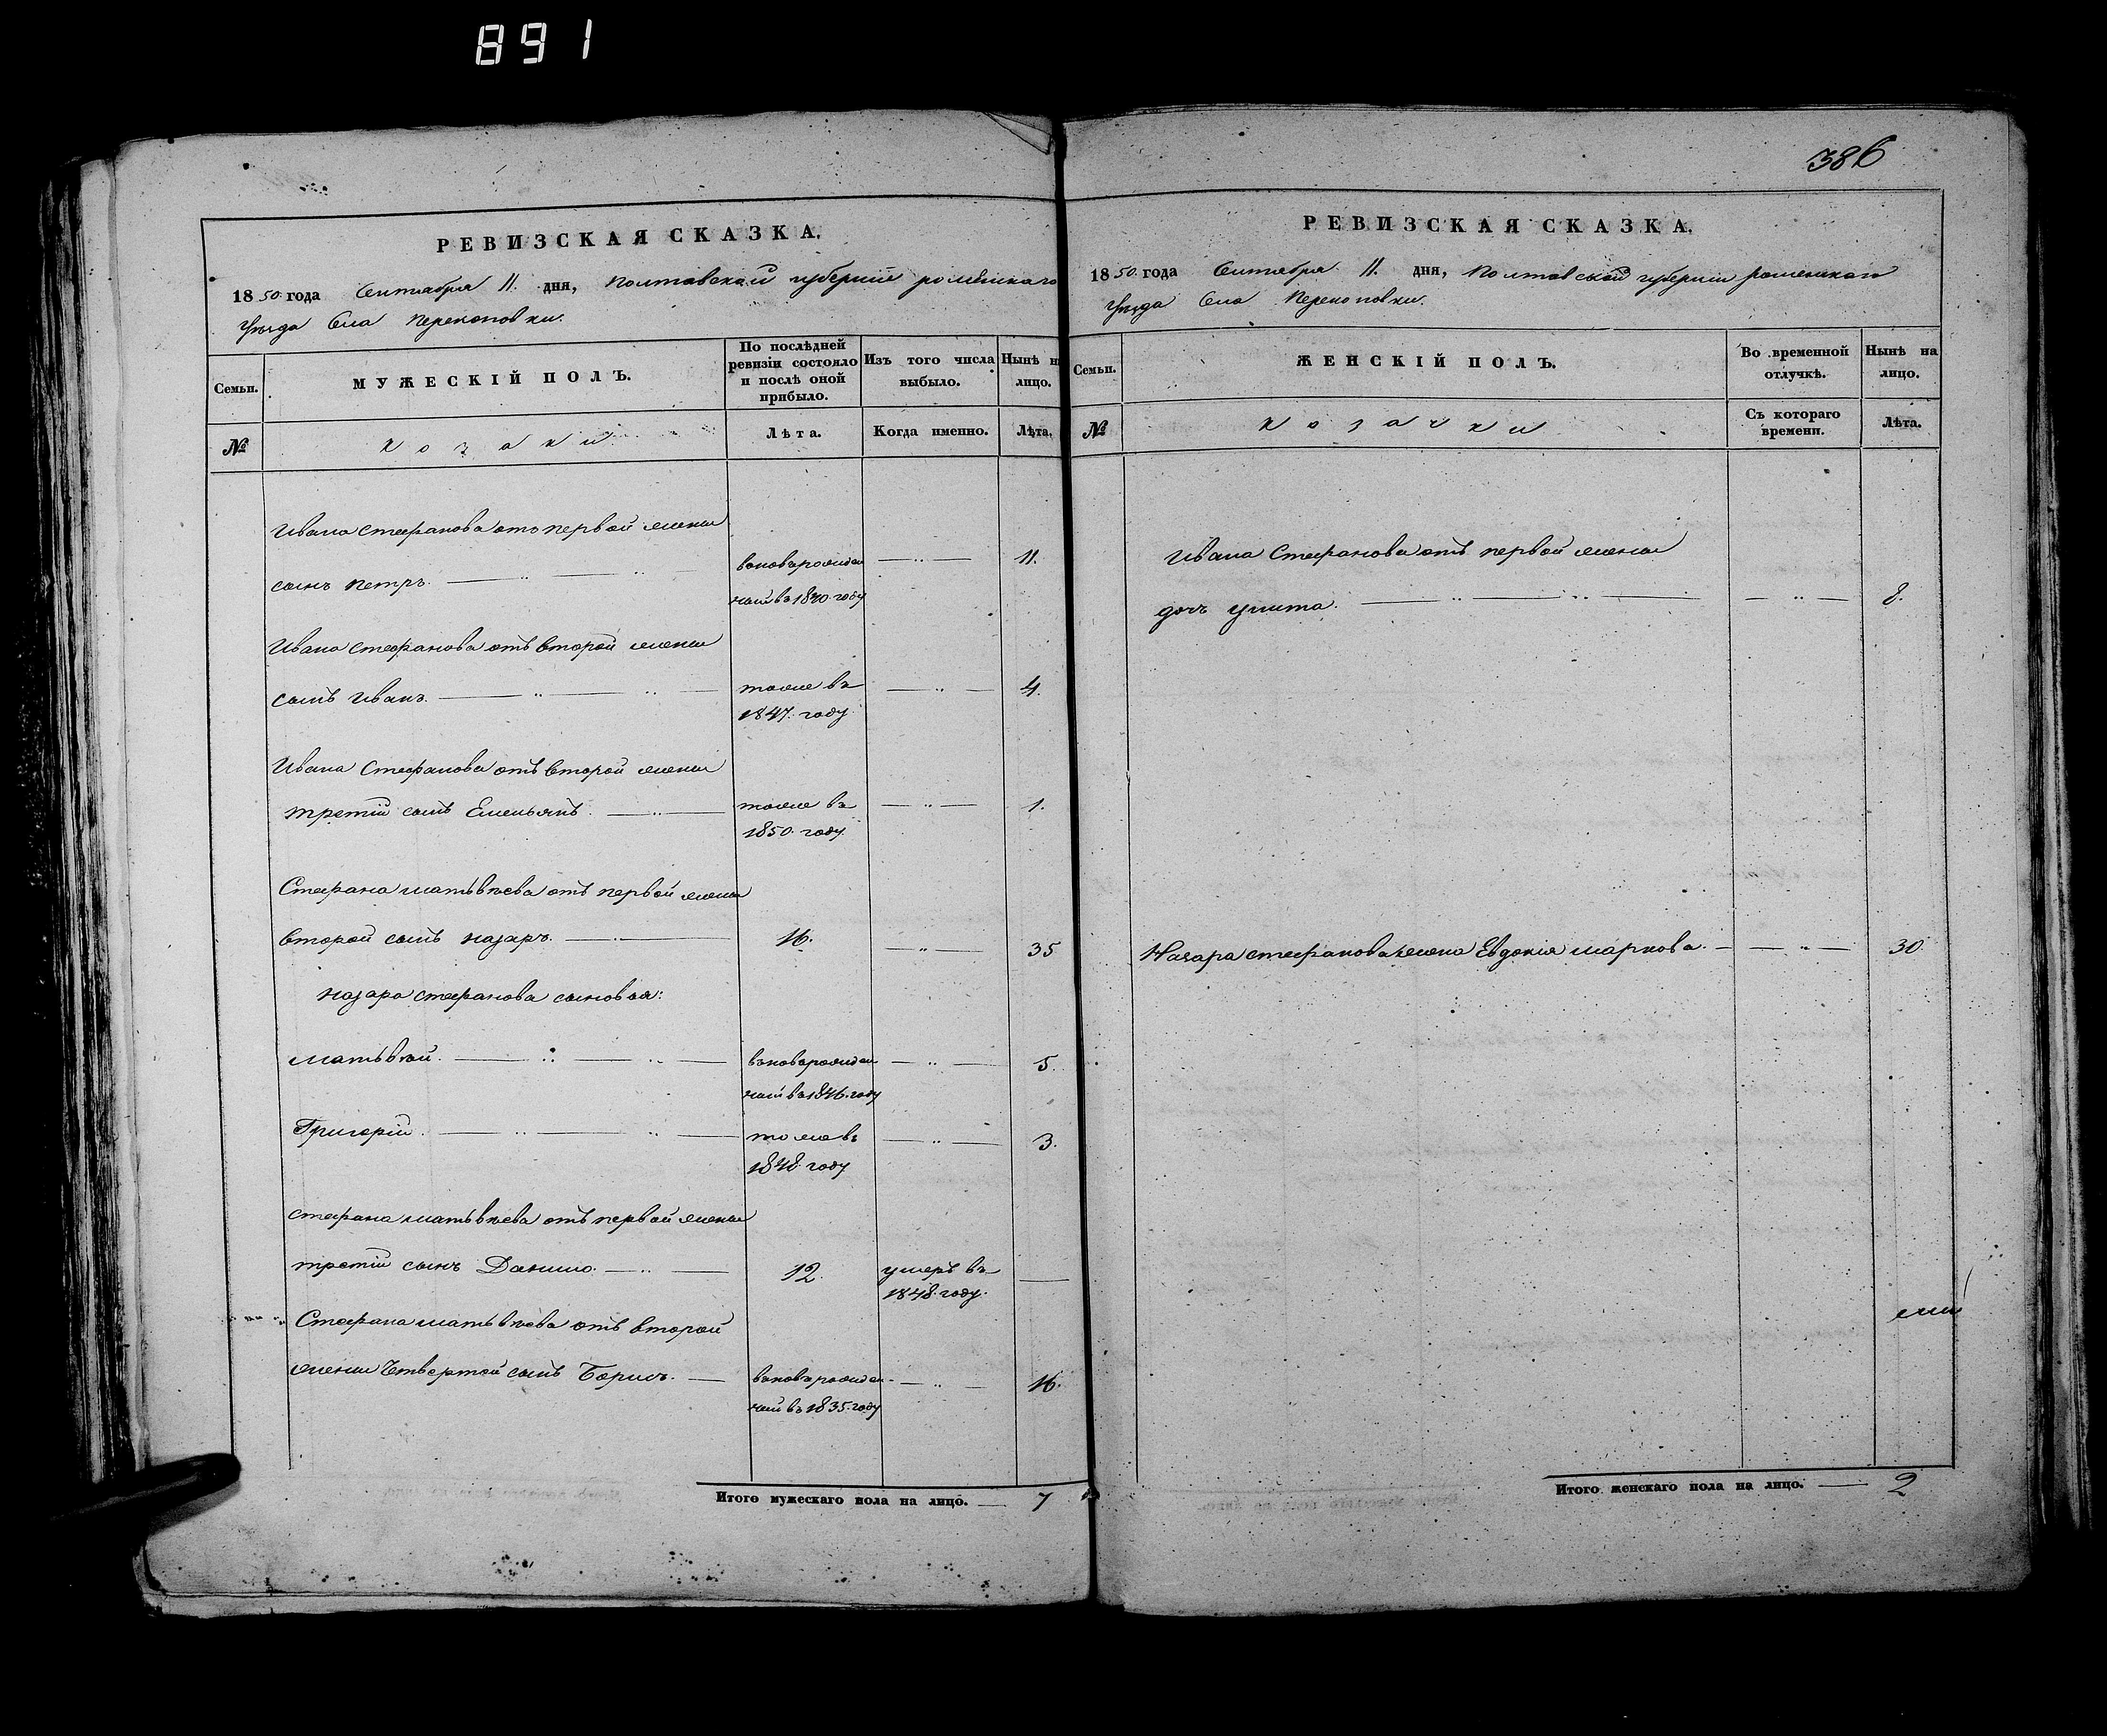 891
386
РЕВИЗСКАЯ СКАЗКА.
1850 года Сентября 11. дня, Полтавской губернии роменскаго
уѣзда Села Перекоповки.
Семьи.
МУЖЕСКІЙ ПОЛЪ.
По послѣдней ревизіи состояло и послѣ оной прибыло.
Изъ того числа выбыло.
Нынѣ н лицо.
№
козаки
Лѣта.
Когда именно.
Лѣта.
Ивана Стефанова отъ первой жены
сынъ Петръ. вновърожден 11.
ный въ 1840. году
Ивана стефанова отъ второй жены
сынъ Иванъ. тоже въ 4.
1847. году
Ивана Стефанова отъ второй жены
третій сынъ Емельянъ. тоже въ 1.
1850. году
Стефана матьвѣева отъ первой жены
второй сынъ назаръ. 16. 35
назара стефанова сыновья:
матьвѣй. вновърожден 5.
ный въ 1846. году
Григорій. тоже въ 3.
1848. году
стефана матьвѣева отъ первой жены
третій сынъ Данило. 12. умеръ въ
1848. году.
Стефана матьвѣева отъ второй
жены Четвертой сынъ Борисъ. вновърожден 16.
ный въ 1835. году
Итого мужескаго пола на лицо. 7
РЕВИЗСКАЯ СКАЗКА.
1850. года Сентября 11. дня, Полтавской губернии роменскаго
уѣзда Села Перекоповки.
Семьи.
ЖЕНСКІЙ ПОЛЪ.
Во временной отлучкѣ.
Нынѣ на лицо.
№
козачки
Съ котораго времени.
Лѣта.
Ивана Стефанова отъ первой жены
дочъ улита. 8.
Назара стефанова жена Евдокія маркова. 30.
Итого женскаго пола на лицо. 2